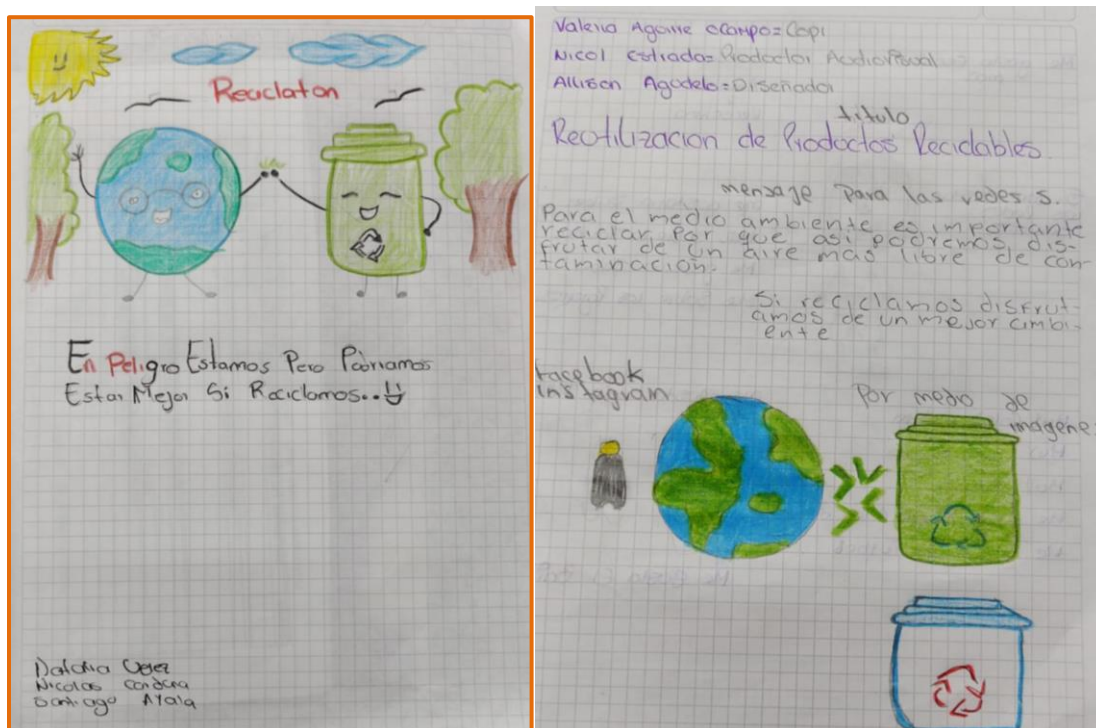 Reciclaton
En Peligro Estamos Pero Podriamos
Estar Mejor Si Reciclamos..
Nicolas
Santiago Ayala
Valeria Aguirre Ocampo=Copi
Nicol Estrada=Productor Audiovisual
Allison Agudelo=Diseñador
titulo
Reutilizacion de Productos Reciclables.
mensaje para las redes s.
Para el medio ambiente es importante
reciclar Por que asi podremos dis-
frutar de un aire mas libre de con-
taminación.
Si reciclamos disfrut-
amos de un mejor ambi-
ente
facebook
instagram
Por medio de
imagene